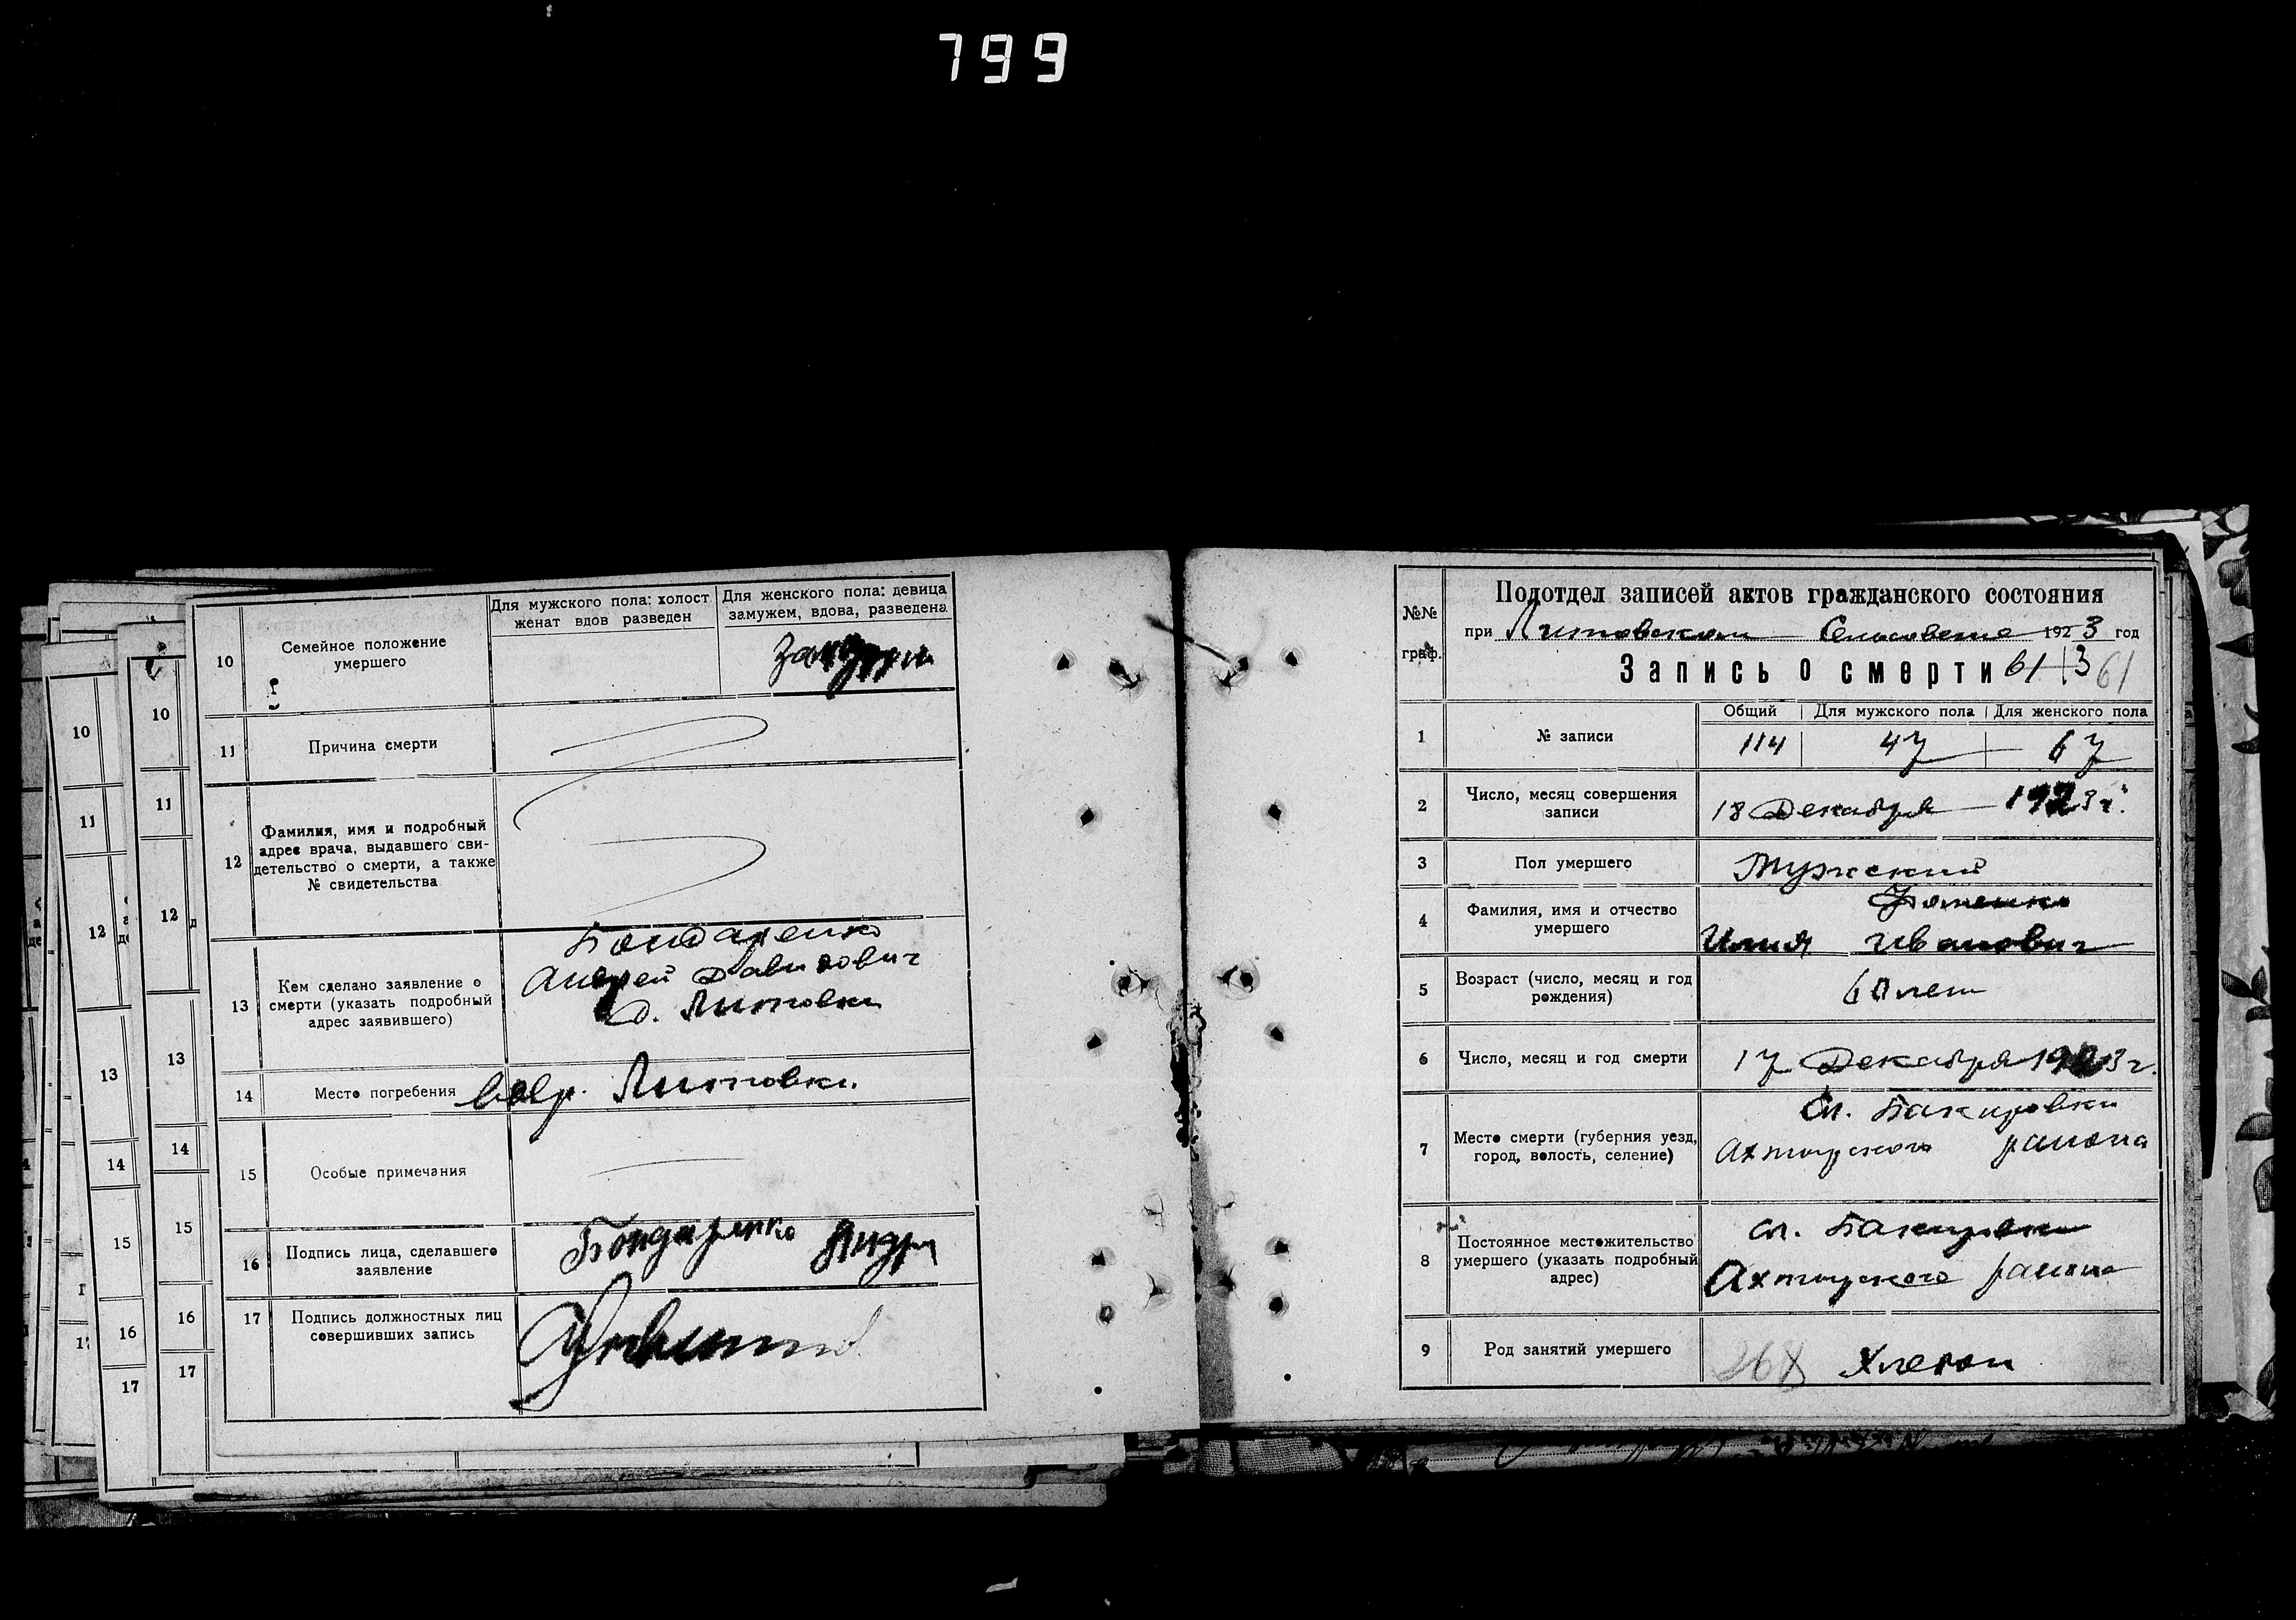 799
10
11
12
13
14
15
16
17
10
11
12
13
14
15
16
17
10
Семейное положение
умершего
Для мужского пола: холост
женат вдов разведен
Для женского пола: девица
замужем, вдова, разведена
11
Причина смерти
12
Фамилия, имя и подробный
адрес врача, выдавшего сви-
детельство о смерти, а также
№ свидетельства
13
Кем сделано заявление о
смерти (указать подробный
адрес заявившего)
Бондаренко
Андрей Давидович
с. Литовки
14
Место погребения
Литовки.
15
Особые примечания
16
Подпись лица, сделавшего
заявление
Бондаренко
17
Подпись должностных лиц
совершивших запись
№№
граф.
Подотдел записей актов гражданского состояния
при Литовском Сельсовете 1923 год
Запись о смерти 61
61
Общий Для мужского пола Для женского пола
1
№ записи
114 47 67
2
Число, месяц совершения
записи
18 Декабря 1923 г.
3
Пол умершего
Мужский
4
Фамилия, имя и отчество
умершего
Илия Иванович
5
Возраст (число, месяц и год
рождения)
60 лет
6
Число, месяц и год смерти
17 Декабря 1923 г.
7
Место смерти (губерния уезд,
город, волость, селение)
сл. Бакировки
Ахтырского района
8
Постоянное местожительство
умершего (указать подробный
адрес)
сл. Бакировки
Ахтырского района
9
Род занятий умершего
268